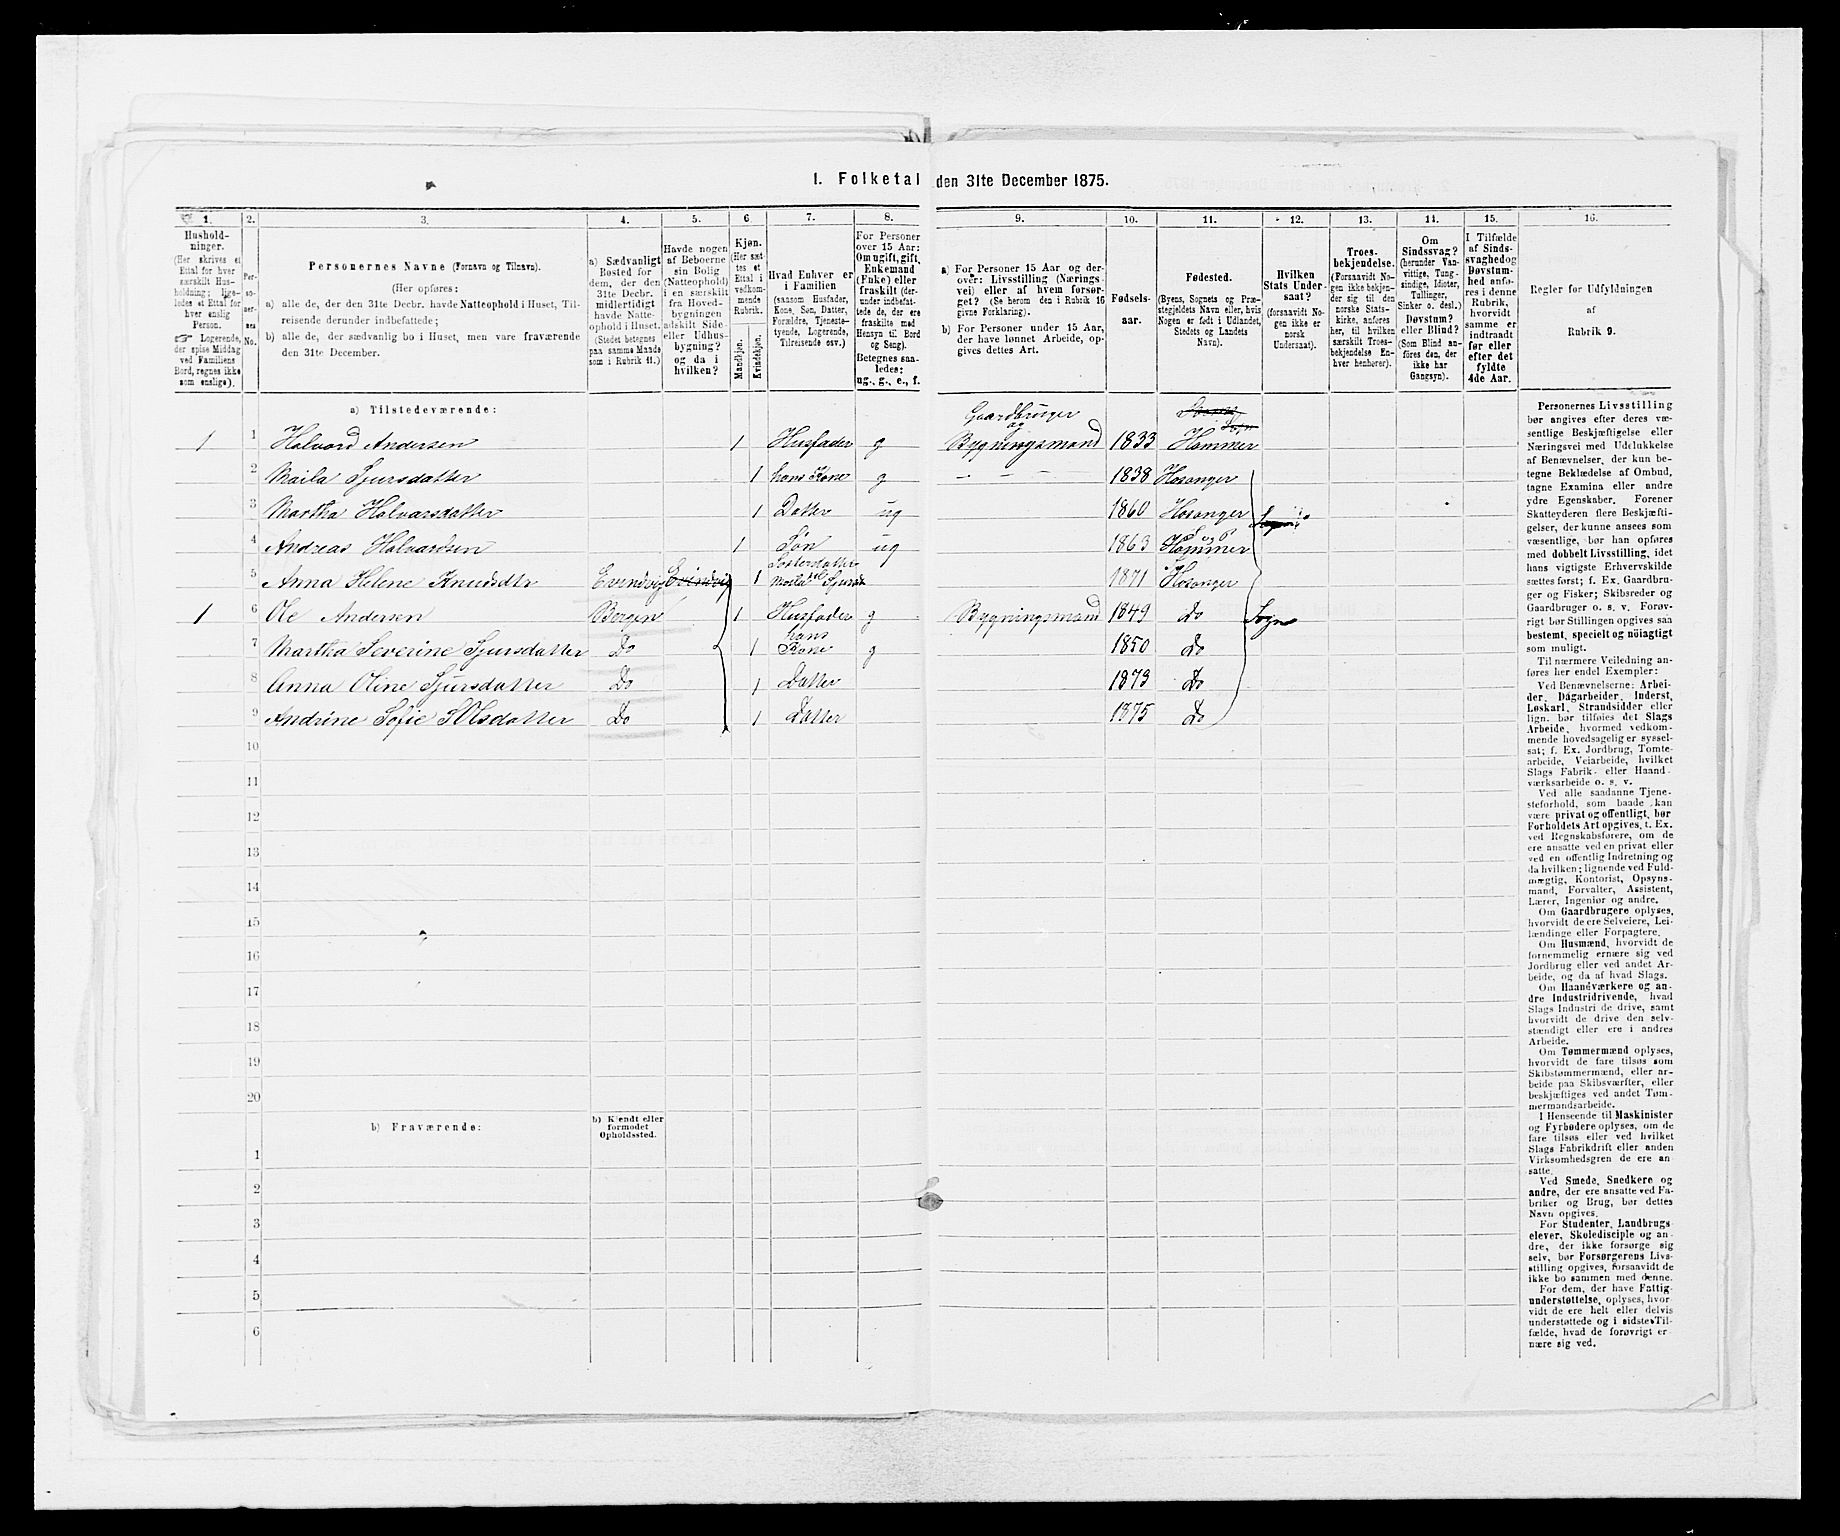 I. Folketal den 31te December 1875.
1. 2. 3. 4. 5. 6. 7. 8. 9. 10. 11. 12. 13. 14. 15. 16.
Hushold-
ninger.
(Her skrives et
Ettal for hver
særskilt Hus-
holdning; lige-
ledes et Ettal for
hver enslig
Person.
☞ Logerende,
der spise Middag
ved Familiens
Bord, regnes ikke
som enslige).
Per-
so-
ner-
nes
No.
Personernes Navne (Fornavn og Tilnavn).
(Her opføres:
a) alle de, der den 31te Decbr. havde Natteophold i Huset, Til-
reisende derunder indbefattede;
b) alle de, der sædvanlig bo i Huset, men vare fraværende
den 31te December.
a) Sædvanligt
Bosted for
dem, der den
31te Decbr.
midlertidigt
havde Natte-
ophold i Huset.
(Stedet betegnes
paa samme Maade
som i Rubrik 11.)
Havde nogen
af Beboerne
sin Bolig
(Natteophold)
i en særskilt
fra Hoved-
bygningen
adskilt Side-
eller Udhus-
bygning?
og da i
hvilken?
Kjøn.
(Her sæt-
tes et
Ettal i
vedkom-
mende
Rubrik.
Mandkjøn.
Kvindekjøn.
Hvad Enhver er
i Familien
(saasom Husfader,
Kone, Søn, Datter,
Forældre, Tjeneste-
tyende, Logerende,
Tilreisende osv.)
For Personer
over 15 Aar:
Om ugift, gift,
Enkemand
(Enke) eller
fraskilt (der-
under indbefat-
tede de, der ere
fraskilte med
Hensyn til Bord
og Seng).
Betegnes saa-
ledes:
ug., g., e., f.
a) For Personer 15 Aar og der-
over: Livsstilling (Nærings-
vei) eller af hvem forsør-
get? (Se herom den i Rubrik 16
givne Forklaring).
b) For Personer under 15 Aar,
der have lønnet Arbeide, op-
gives dettes Art.
Fødsels-
aar.
Fødested.
(Byens, Sognets og Præ-
stegjeldets Navn eller, hvis
Nogen er født i Udlandet,
Stedets og Landets
Navn).
Hvilken
Stats Under-
saat?
(forsaavidt No-
gen ikke er
norsk
Undersaat).
Troes-
bekjendelse.
(Forsaavidt No-
gen ikke bekjen-
der sig til den
norske Stats-
kirke, anføres
her, til hvilken
særskilt Troes-
bekjendelse En-
hver henhører).
Om
Sindssvag?
(herunder Van-
vittige, Tung-
sindige, Idioter,
Tullinger,
Sinker o. desl.)
Døvstum?
eller Blind?
(Som Blind an-
føres den, der
ikke har
Gangsyn).
I Tilfælde
af Sinds-
svaghed og
Døvstum-
hed anfø-
res i denne
Rubrik,
hvorvidt
samme er
indtraadt
før eller
efter det
fyldte
4de Aar.
Regler for Udfyldningen
af
Rubrik 9.
a) Tilstedeværende:
Gaardbruger
og
1 1 Halvard Andersen 1 Husfader g Bygningsmand 1833 Hammer
2 Maila Sjursdatter 1 hans Kone g — — 1838 Hosanger
3 Martha Halvarsdatter 1 Datter ug 1860 Hosanger
4 Andreas Halvardsen 1 Søn ug 1863 Hammer
Søsterdatter
5 Anna Helene Knudsdtr Evindvig Evindvig 1 Maila Sjursd 1871 Hosanger
1 6 Ole Andersen Bergen 1 Husfader g Bygningsmand 1849 Do Sogn
hans
7 Martha Severine Sjursdatter Do 1 Kone g 1850 Do
8 Anna Oline Sjursdatter Do 1 Datter 1873 Do
9 Andrine Sofie Olsdatter Do 1 Datter 1875 Do
10
11
12
13
14
15
16
17
18
19
20
b) Fraværende:
b) Kjendt eller
formodet
Opholdssted.
1
2
3
4
5
6
Personernes Livsstilling
bør angives efter deres væ-
sentlige Beskjæftigelse eller
Næringsvei med Udelukkelse
af Benævnelser, der kun be-
tegne Beklædelse af Ombud,
tagne Examina eller andre
ydre Egenskaber. Forener
Skatteyderen flere Beskjæfti-
gelser, der kunne ansees som
væsentlige, bør han opføres
med dobbelt Livsstilling, idet
hans vigtigste Erhvervskilde
sættes først; f. Ex. Gaardbru-
ger og Fisker; Skibsreder og
Gaardbruger o. s. v. Forøv-
rigt bør Stillingen opgives saa
bestemt, specielt og nöiagtigt
som muligt.
Til nærmere Veiledning an-
føres her endel Exempler:
Ved Benævnelserne: Arbei-
der, Dagarbeider, Inderst,
Løskarl, Strandsidder eller
lign. bør tilføies det Slags
Arbeide, hvormed vedkom-
mende hovedsagelig er syssel-
sat; f. Ex. Jordbrug, Tomte-
arbeide, Veiarbeide, hvilket
Slags Fabrik- eller Haand-
værksarbeide o. s. v.
Ved alle saadanne Tjene-
steforhold, som baade kan
være privat og offentligt, bør
Forholdets Art opgives, t. Ex.
ved Regnskabsførere, om de
ere ansatte ved en privat eller
ved en offentlig Indretning og
da hvilken; lignende ved Fuld-
mægtig, Kontorist, Opsyns-
mand, Forvalter, Assistent,
Lærer, Ingeniør og andre.
Om Gaardbrugere oplyses,
hvorvidt de ere Selveiere, Lei-
lændinge eller Forpagtere.
Om Husmænd, hvorvidt de
fornemmelig ernære sig ved
Jordbrug eller ved andet Ar-
beide, og da af hvad Slags.
Om Haandværkere og an-
dre Industridrivende, hvad
Slags Industri de drive, samt
hvorvidt de drive den selv-
stændigt eller ere i andres
Arbeide.
Om Tømmermænd oplyses,
hvorvidt de fare tilsøs som
Skibstømmermænd, eller ar-
beide paa Skibsværfter, eller
beskjæftiges ved andet Tøm-
mermandsarbeide.
I Henseende til Maskinister
og Fyrbødere oplyses, om de
fare tilsøs eller ved hvilket
Slags Fabrikdrift eller anden
Virksomhedsgren de ere an-
satte.
Ved Smede, Snedkere og
andre, der ere ansatte ved Fa-
briker og Brug, bør dettes
Navn opgives.
For Studenter, Landbrugs-
elever, Skoledisciple og an-
dre, der ikke forsørge sig
selv, bør Forsørgerens Livs-
stilling opgives, forsaavidt de
ikke bo sammen med denne.
For dem, der have Fattig-
understøttelse, oplyses, hvor-
vidt de ere helt eller delvis
understøttede og i sidste Til-
fælde, hvad de forøvrigt er-
nære sig ved.